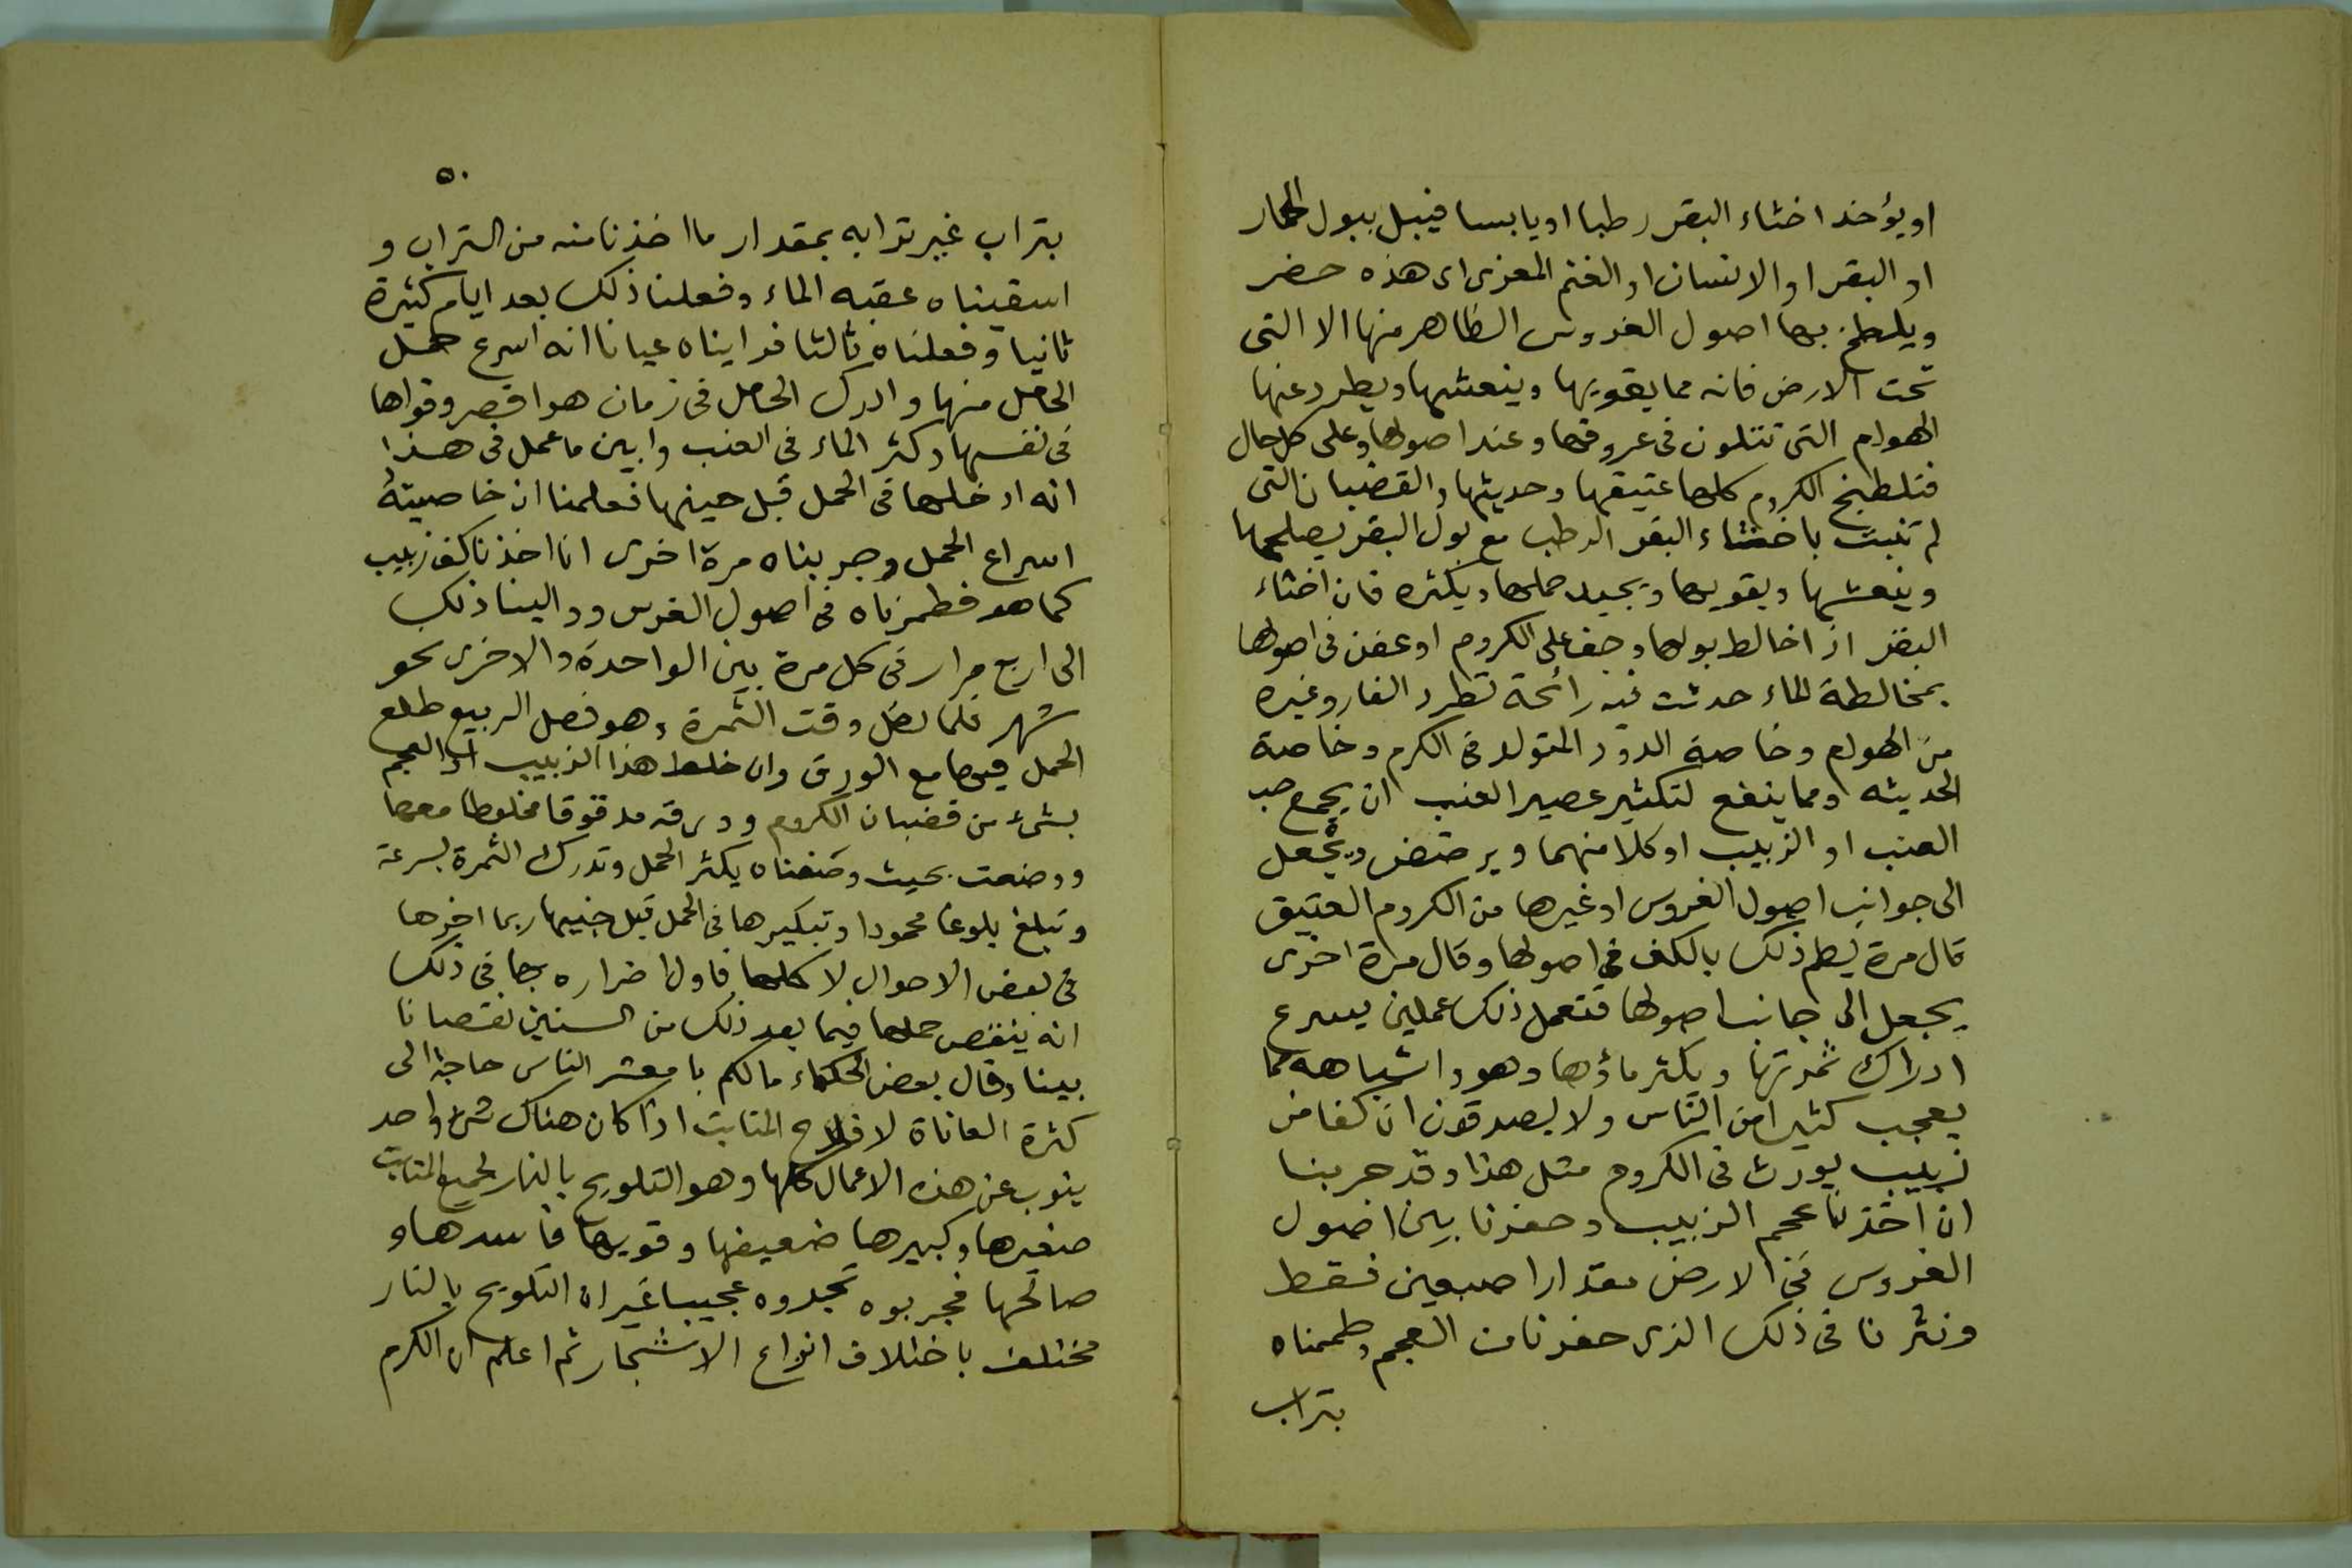 او يؤخذ اخثاء البقر رطبا او يابسا فيبل ببول الحمار
او البقر او الانسان او الغنم المعزى اى هذه حضر
ويلطخ بها اصول الغروس الظاهر منها الا التى
تحت الارض فانه مما يقويها وينعشها ويطرد عنها
الهوام التى تتلون فى عروقها وعند اصولها وعلى كل حال
فتلطيخ الكروم كلها عتيقها وحديثها والقضبان التى
لم تنبت باخثاء البقر الرطب مع بول البقر يصلحها
وينعشها ويقويها ويجيد حملها ويكثره فان اخثاء
البقر اذا خالط بولها وجف على الكروم او عفن فى اصولها
بمخالطة الماء حدثت فيه رائحة تطرد الفار وغيره
من الهوام وخاصة الدود المتولد فى الكرم وخاصة
الحديثه ومما ينفع لتكثير عصير العنب ان يجمع حب
العنب او الزبيب او كلا منهما ويرضض ويجعل
الى جوانب اصول الغروس او غيرها من الكروم العتيق
قال مرة يطم ذلك بالكف فى اصولها وقال مرة اخرى
يجعل الى جانب اصولها فتعمل ذلك عملين يسرع
ادراك ثمرتها ويكثر ماؤها وهو واشباهه مما
يعجب كثيرا من الناس ولا يصدقون ان كفا من
زبيب يورث فى الكروم مثل هذا وقد جربنا
ان اخذنا عجم الزبيب وحفرنا بين اصول
الغروس فى الارض مقدار اصبعين فقط
ونثرنا فى ذلك الذى حفرنا من العجم وطممناه
بتراب
٥٠
بتراب غير ترابه بمقدار ما اخذنا منه من التراب و
اسقيناه عقبه الماء وفعلنا ذلك بعد ايام كثيرة
ثانيا وفعلناه ثالثا فرايناه عيانا انه اسرع حمل
الحامل منها وادرك الحامل فى زمان هو اقصر وقواها
فى نفسها وكثر الماء فى العنب وابين ما عمل فى هذا
انه ادخلها فى الحمل قبل حينها فعلمنا ان خاصيته
اسراع الحمل وجربناه مرة اخرى انا اخذنا كف زبيب
كما هو فطمرناه فى اصول الغرس ووالينا ذلك
الى اربع مرار فى كل مرة بين الواحدة والاخرى نحو
شهر فلما وقت الثمرة وهو فصل الربيع طلع
الحمل فيها مع الورق وان خلط هذا الزبيب او العجم
بشىء من قضبان الكروم وورقه مدقوقا مخلوطا معها
ووضعت بحيث وضعناه يكثر الحمل وتدرك الثمرة بسرعة
وتبلغ بلوغا محمودا وتبكيرها فى الحمل قبل حينها ربما اضرها
فى بعض الاحوال لا كلها فاول اضراره بها فى ذلك
انه ينقص حملها فيما بعد ذلك من السنين نقصانا
بينا وقال بعض الحكماء ما لكم يا معشر الناس حاجة الى
كثرة المعاناة لافلاح المنابت اذا كان هناك شىء واحد
ينوب عن هذه الاعمال كلها وهو التلويح بالنار لجميع المنابت
صغيرها وكبيرها ضعيفها وقويها فاسدها و
صالحها فجربوه تجدوه عجيبا غير ان التلويح بالنار
مختلف باختلاف انواع الاشجار ثم اعلم ان الكرم